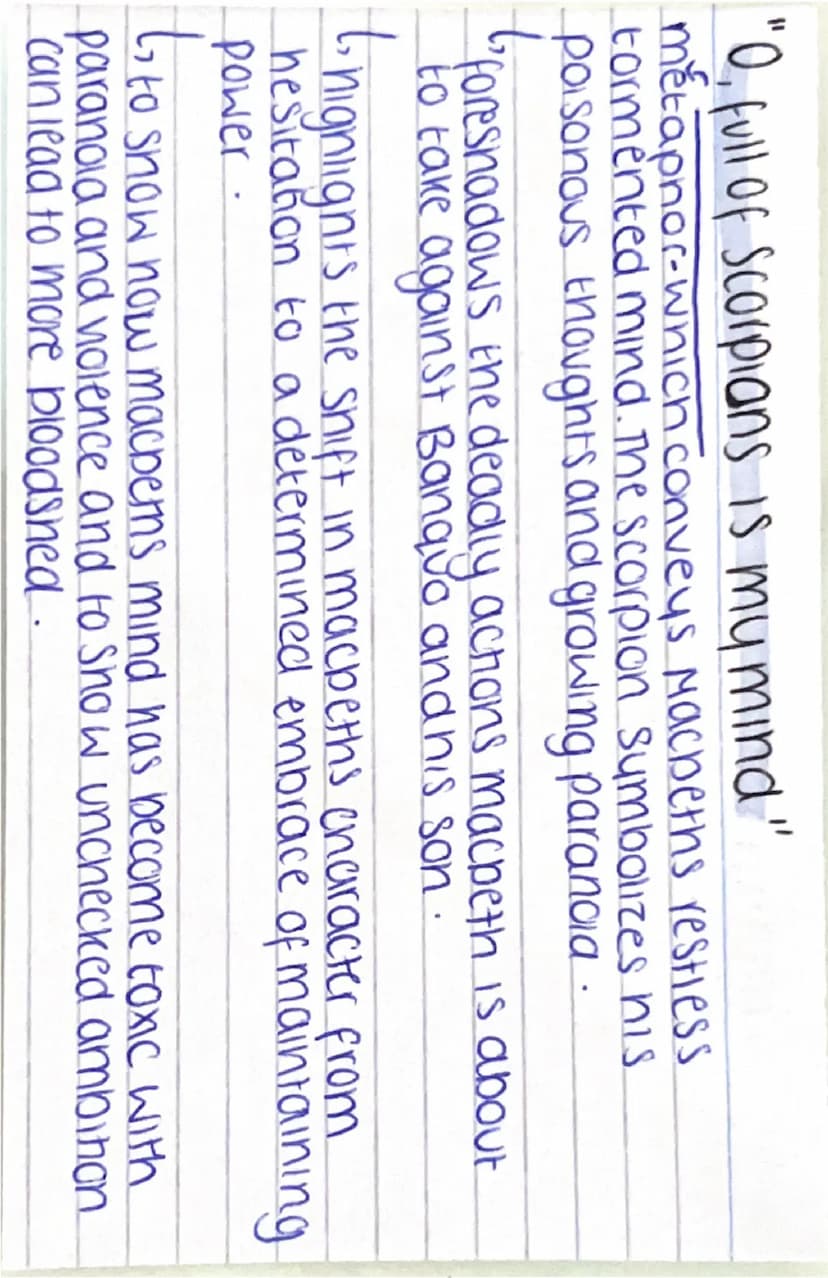 "O, full of scorpians is my mind"
metaphor - which conveys Macbeths restless
tormented mind. The scorpion symbolizes his
poisonous thoughts and growing paranoia.
↳ foreshadows the deadly actions macbeth is about
to take against Banquo and his son.
↳ highlights the shift in macbeths character from
hesitation to a determined embrace of maintaining
power.
↳ to show how macbeths mind has become toxic with
paranoia and violence and to show unchecked ambition
can lead to more bloodshed.